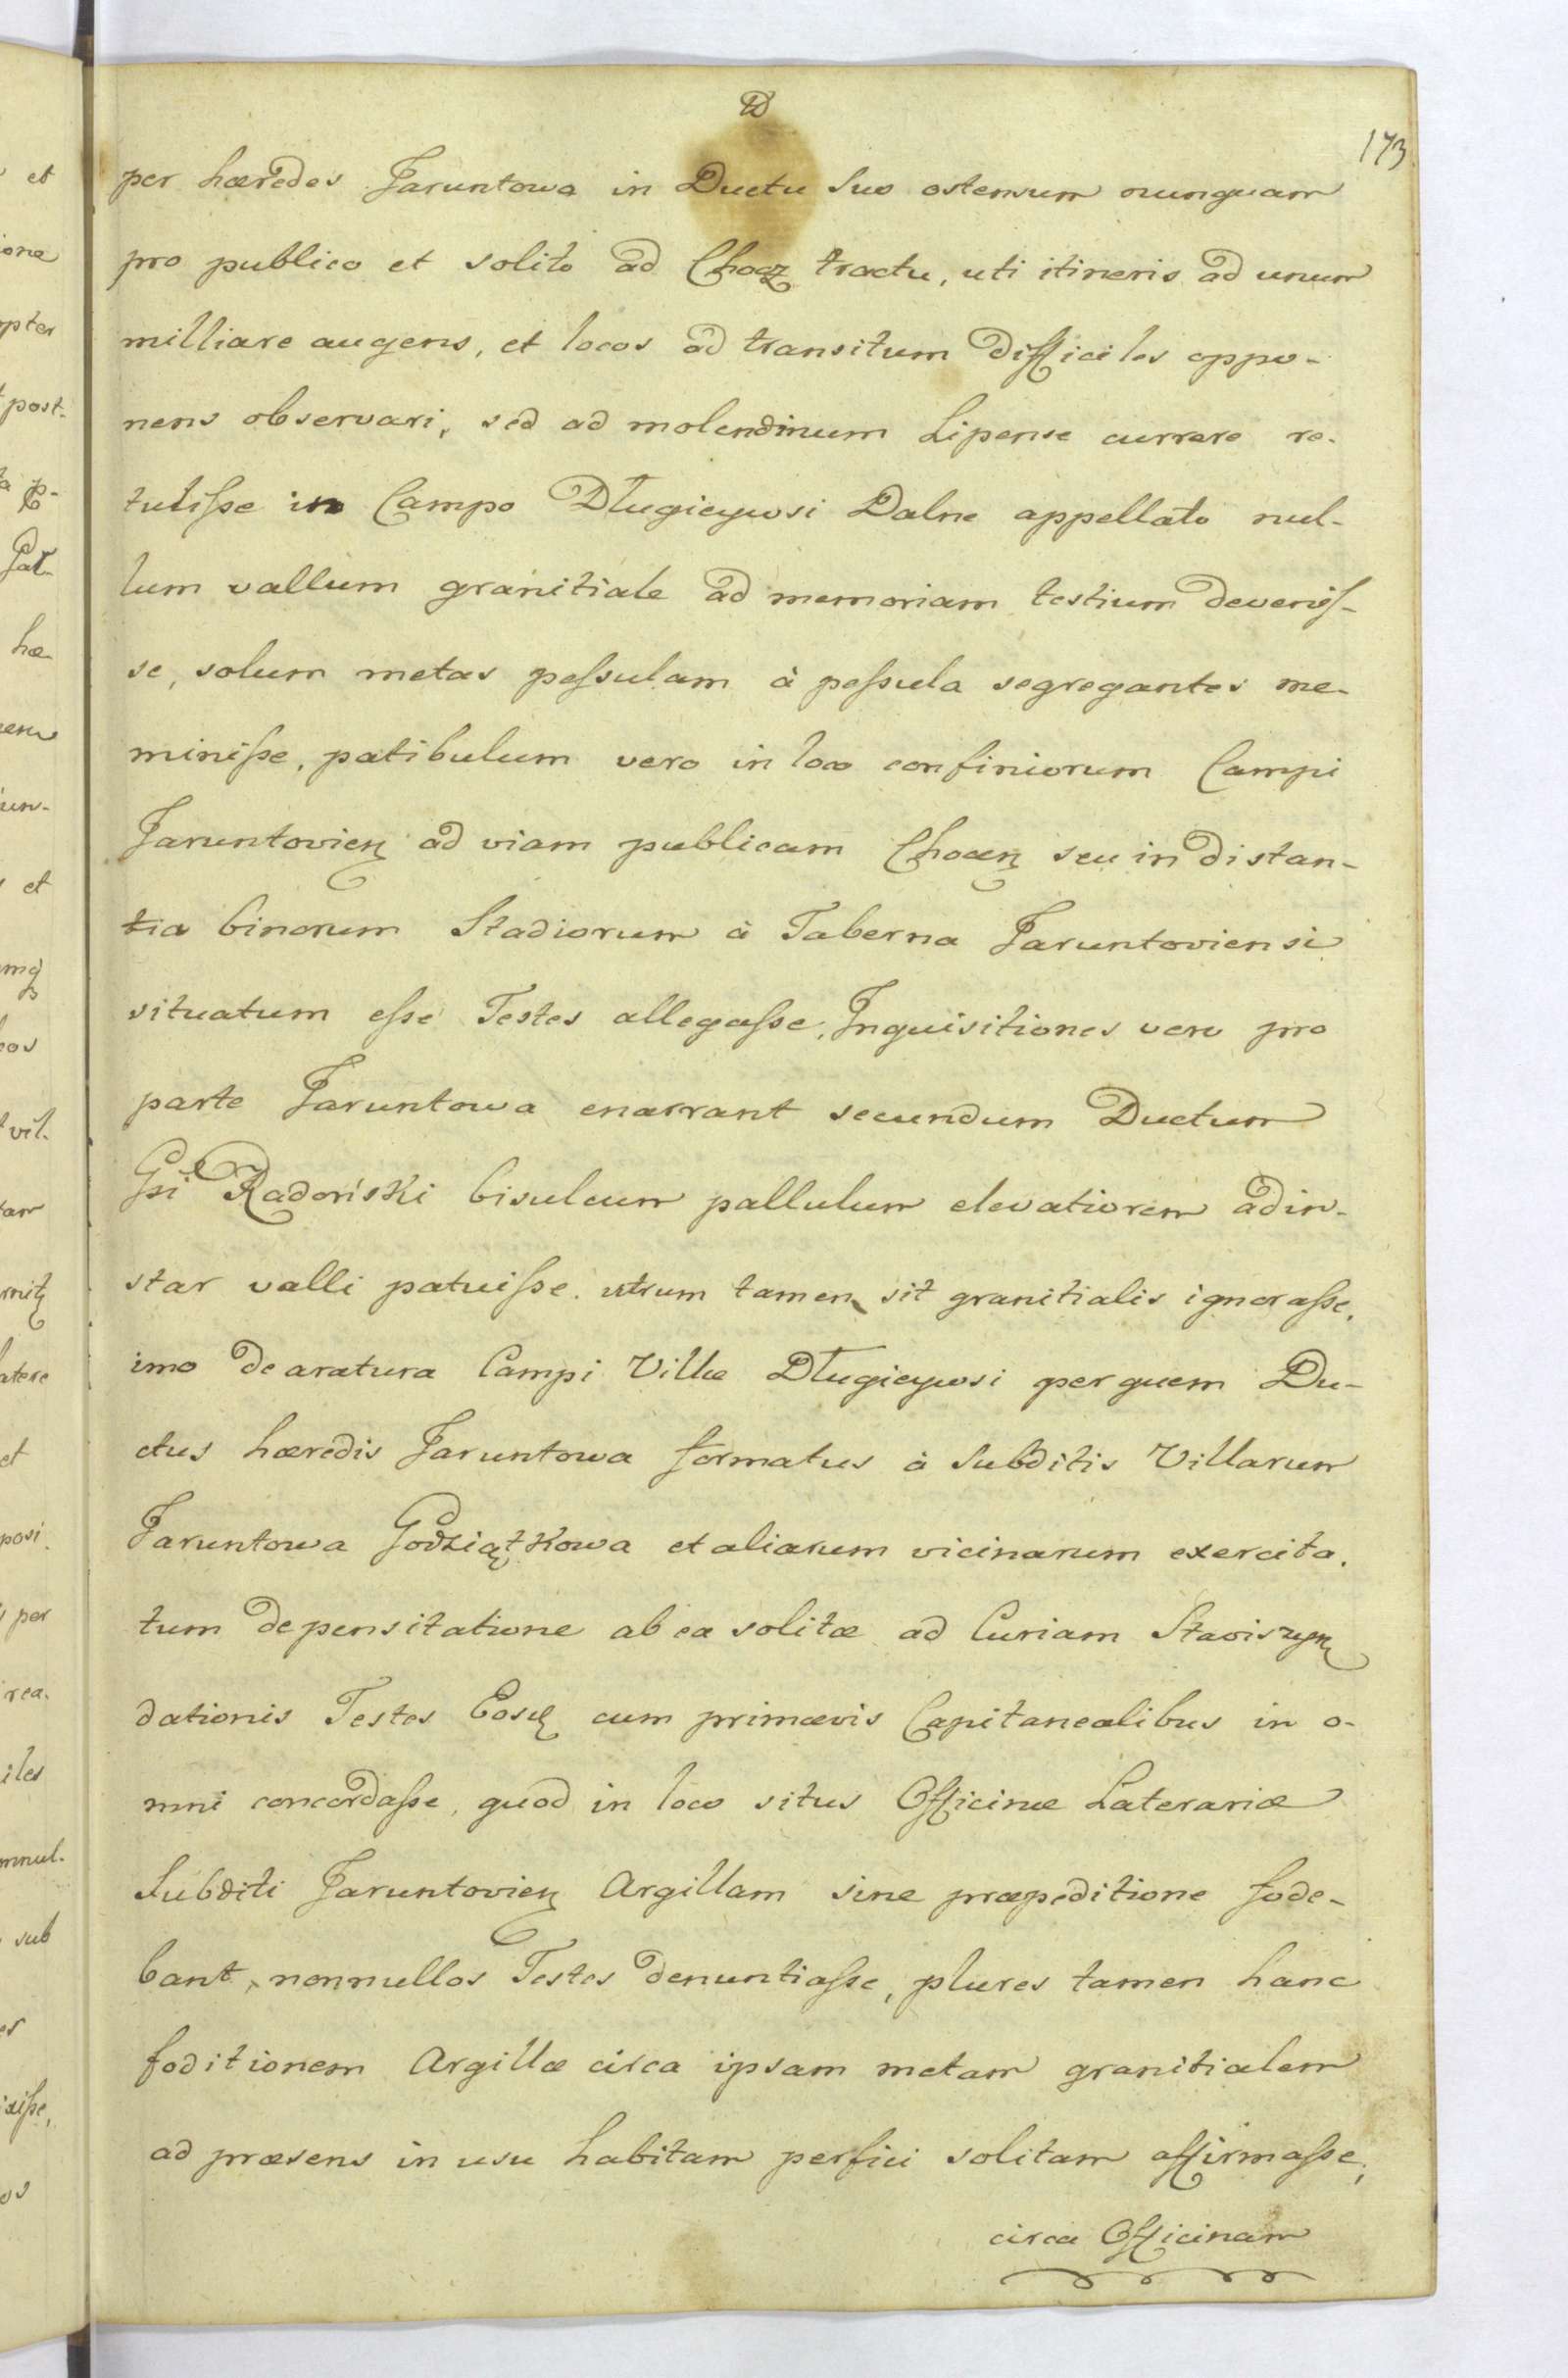 173
per hæredes Jaruntowa in Ductu suo ostensum nunquam
pro publico et solito ad Chocz tractu, uti itineris ad unum
milliare augens, et locos ad transitum difficiles oppo-
nens observari, sed ad molendinum Lipense currere re-
tulisse in Campo Długieywsi Dalne appellato nul-
lum vallum granitiale ad memoriam testium devenis-
se, solum metas pessulam à pessula segregantes me-
minisse, patibulum vero in loco confiniorum Campi
Jaruntovien ad viam publicam Chocen seu in distan-
tia binorum Stadiorum à Taberna Jaruntoviensi
situatum esse Testes allegasse, Inquisitiones vero pro
parte Jaruntowa enarrant secundum Ductum
Gsi Radoński bisulcum pallulum elevatiorem ad in-
star valli patuisse. utrum tamen sit granitialis ignorasse,
imo de aratura Campi Villæ Długieywsi per quem Du-
ctus hæredis Jaruntowa formatus à Subditis Villarum
Jaruntowa Godziątkowa et aliarum vicinarum exercita.
tum de pensitatione ab ea solitæ ad Curiam Stawiszyn
dationis Testes Eosd cum primævis Capitanealibus in o-
mni concordasse, quod in loco situs Officinæ Laterariæ
Subditi Jaruntovien Argillam sine præpeditione fode-
bant, nonnullos Testes denuntiasse, plures tamen hanc
foditionem Argillæ circa ipsam metam granitialem
ad præsens in usu habitam perfici solitam affirmasse,
circa Officinam